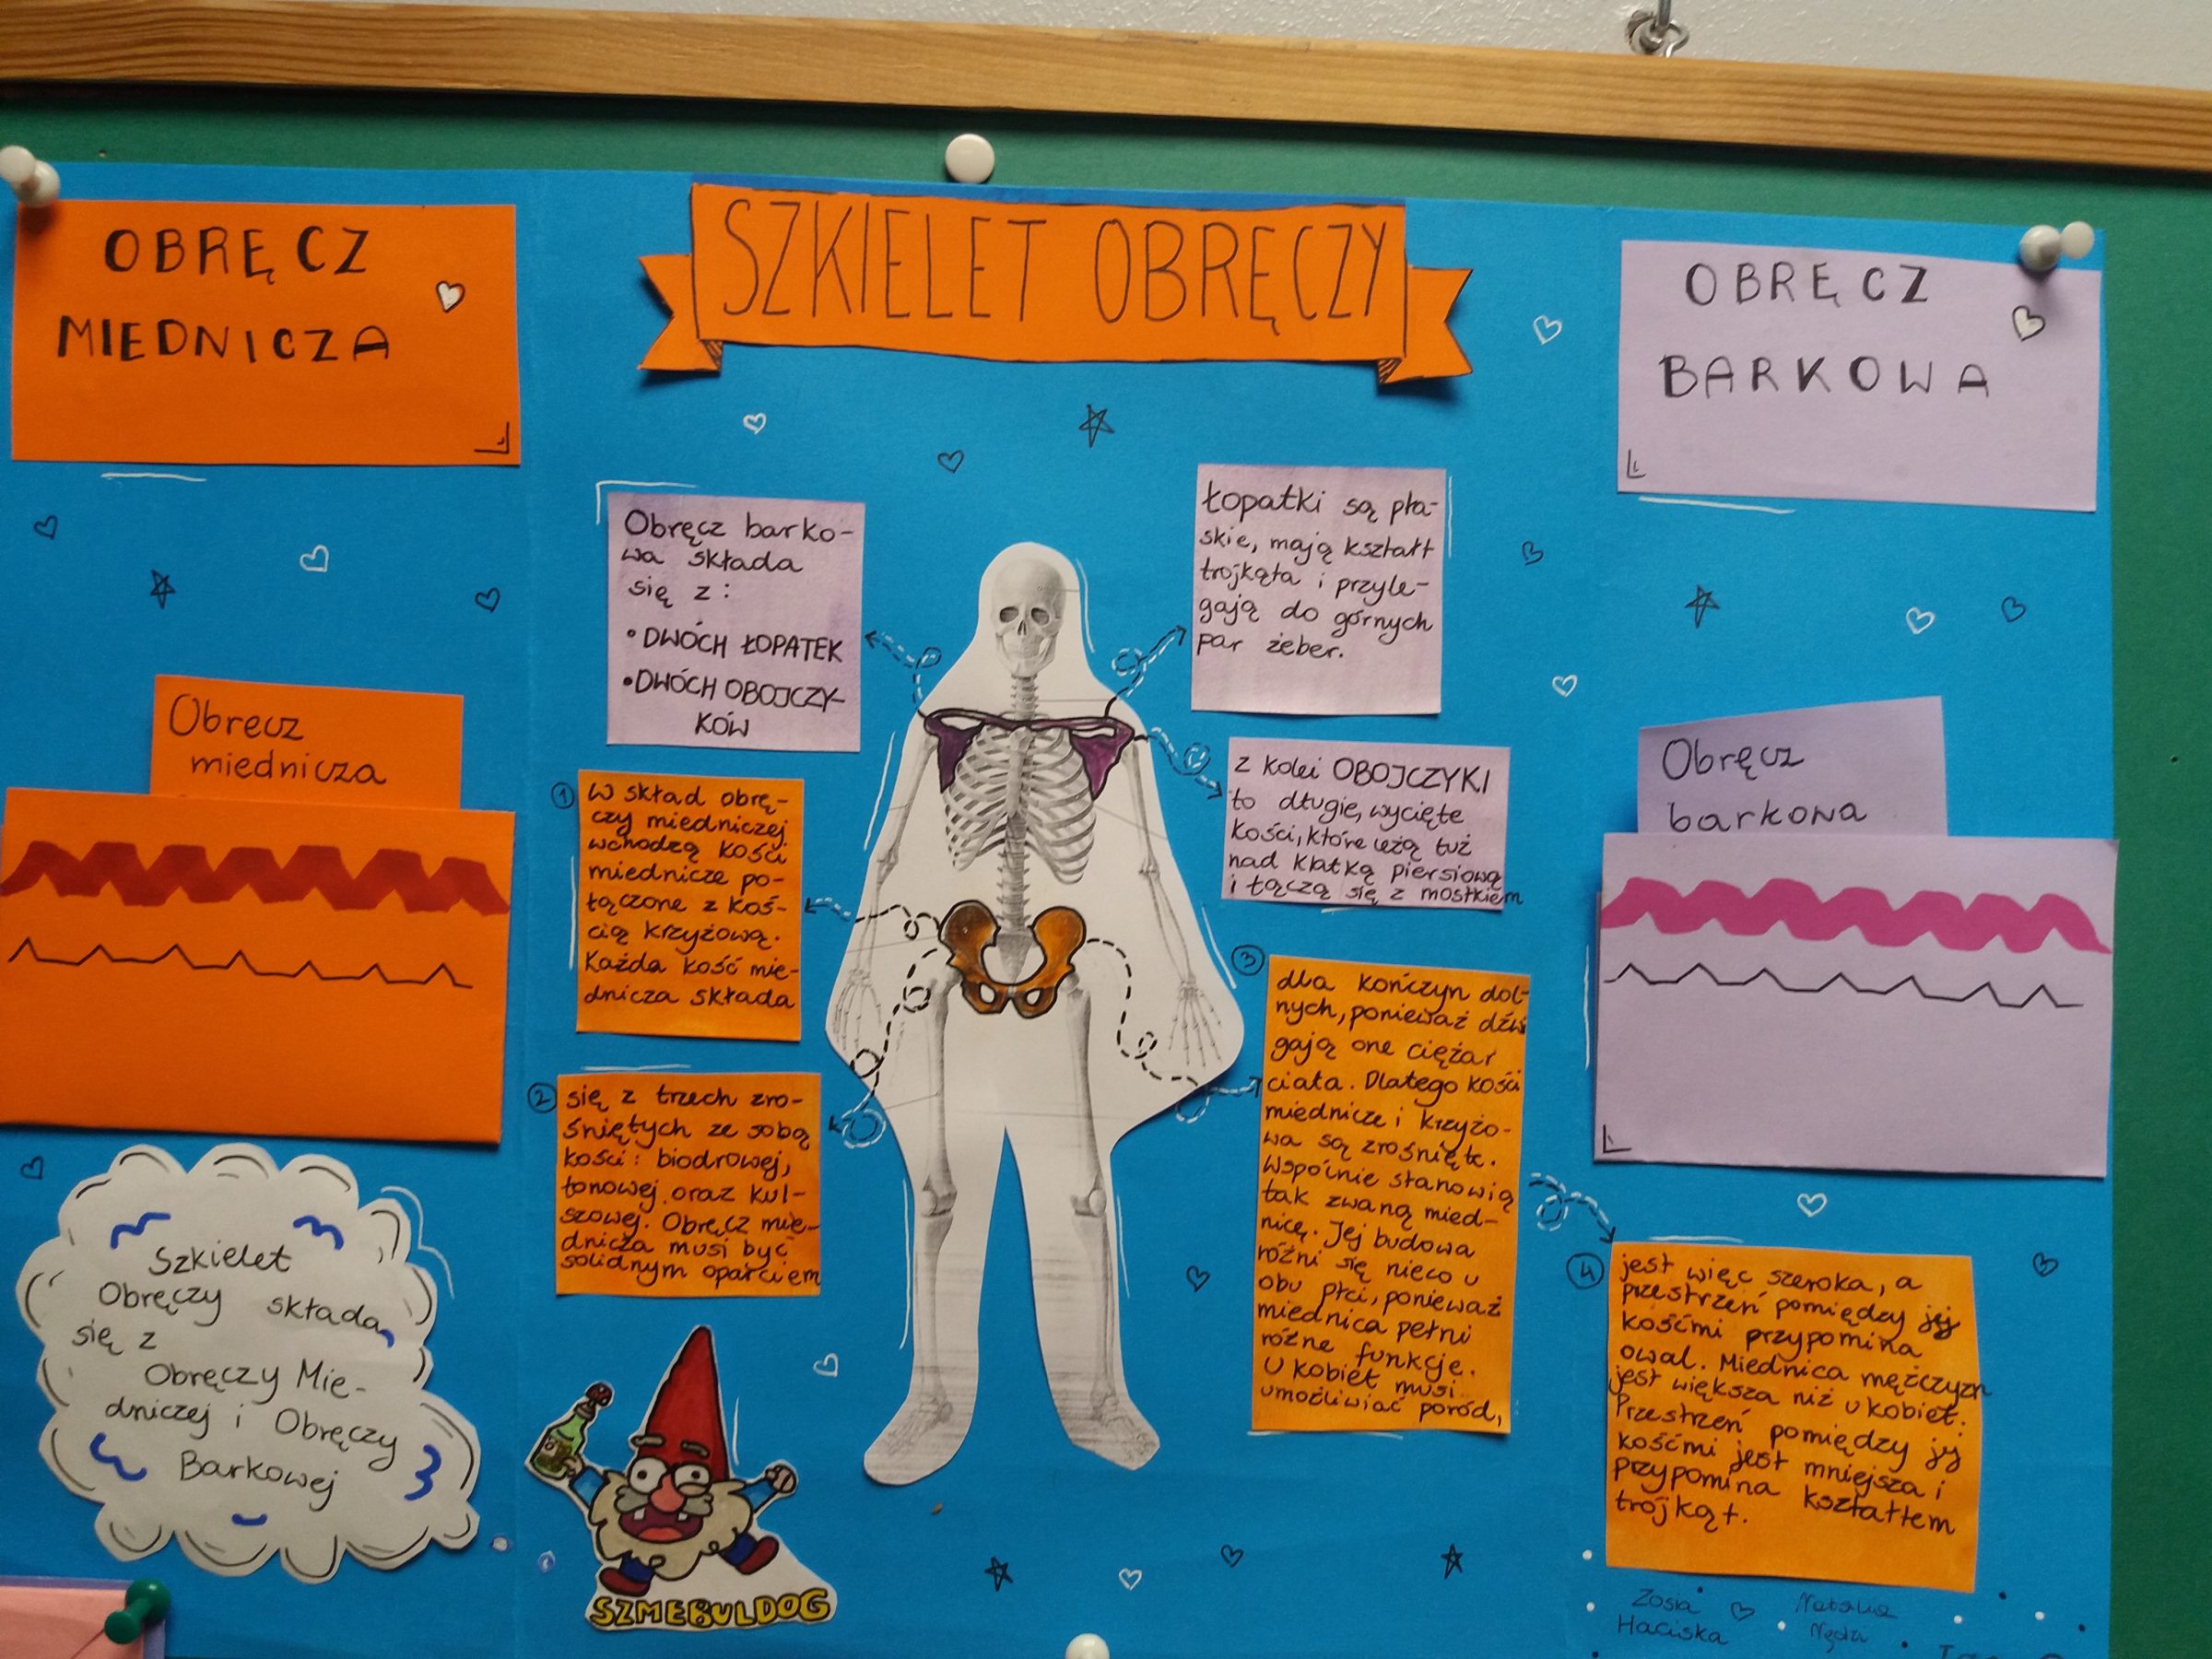 OBRĘCZ
MIEDNICZA
SZKIELET OBRĘCZY
OBRĘCZ
BARKOWA
Obręcz barko-
wa składa
się z:
• DWÓCH ŁOPATEK
• DWÓCH OBOJCZY-
KÓW
Łopatki są pła-
skie, mają kształt
trojkąta i przyle-
gają do górnych
par żeber.
z kolei OBOJCZYKI
to długie, wycięte
kości, które leżą tuż
nad klatką piersiową
i łączą się z mostkiem
Obrecz
miednicza
Obręcz
barkowa
1
W skład obrę-
czy miedniczej
wchodzą kości
miednicze po-
łączone z koś-
cią krzyżową.
Każda kość mie-
dnicza składa
2
się z trzech zro-
śniętych ze sobą
kości: biodrowej,
łonowej oraz kul-
szowej. Obręcz mie-
dnicza musi być
solidnym oparciem
3
dla kończyn dol-
nych, ponieważ dźwi
gają one ciężar
ciała. Dlatego kości
miednicze i krzyżo-
wa są zrośnięte.
Wspólnie stanowią
tak zwaną mied-
nicę. Jej budowa
różni się nieco u
obu płci, ponieważ
miednica pełni
różne funkcje.
U kobiet musi
umożliwiać poród,
4
jest więc szeroka, a
przestrzeń pomiędzy jej
kośćmi przypomina
owal. Miednica mężczyzn
jest większa niż u kobiet.
Przestrzeń pomiędzy jej
kośćmi jest mniejsza i
przypomina kształtem
trójkąt.
Szkielet
Obręczy składa
się z
Obręczy Mie-
dniczej i Obręczy
Barkowej
SZMEBULDOG
Zosia
Haciska
Natalia